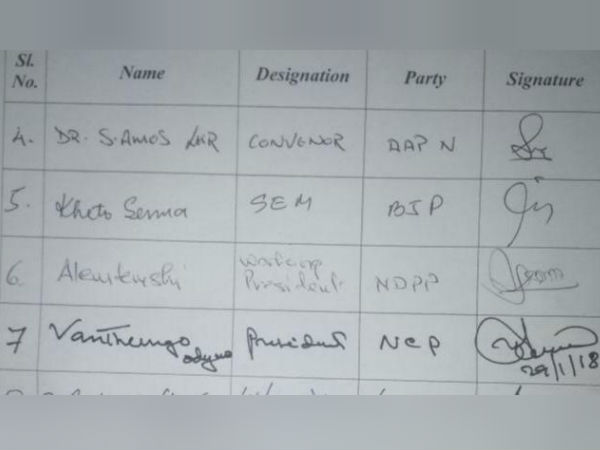 Sl. No. Name Designation Party Signature
4. DR. S. AMOS LKR CONVENOR AAP N
5. Kheto Sema SEM BJP
6. Alemtemshi Working President NDPP
7 Vanthungo odyuo President NCP
29/1/18